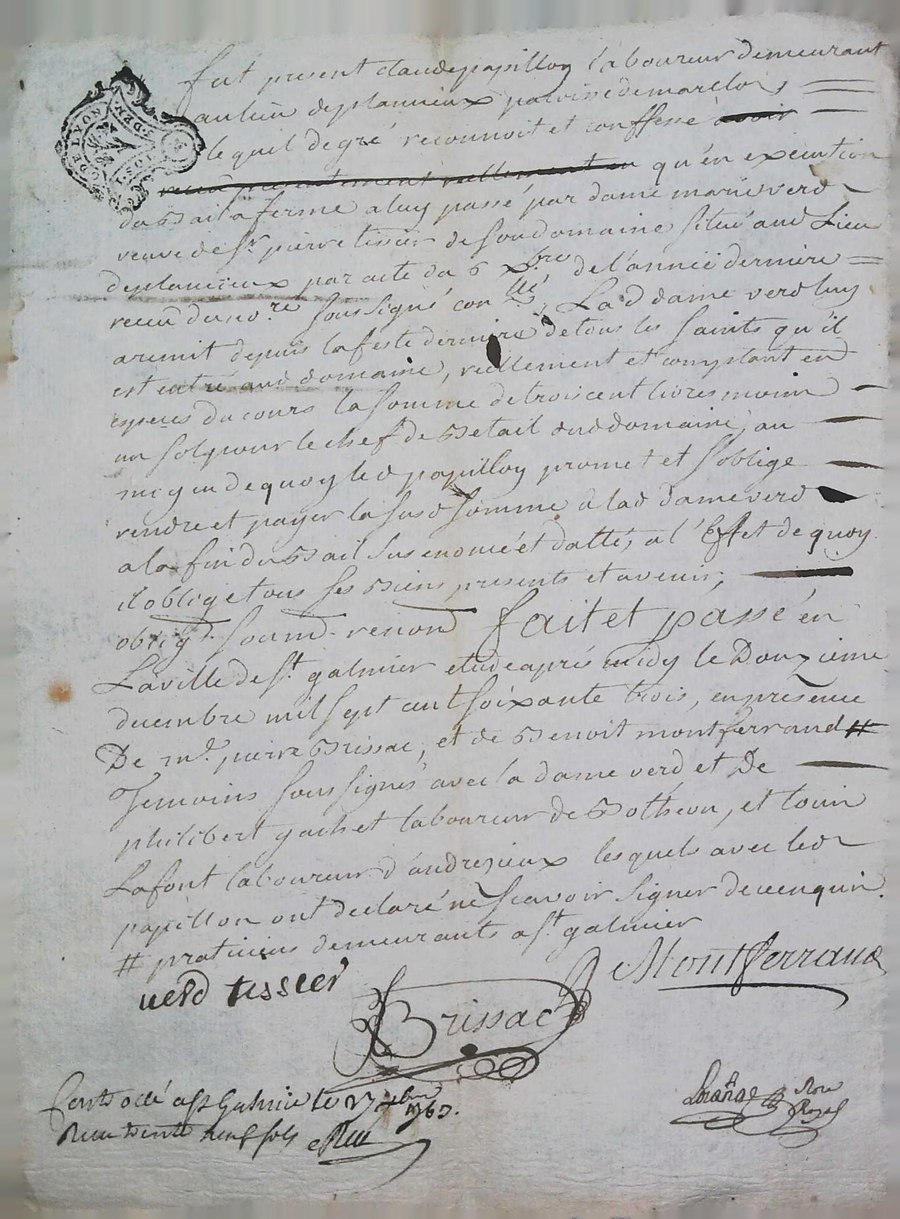 GDE LYON
fut present claude papillon laboureur demeurant
au lieu de planieux paroisse de marclop
lequel de gré reconnoit et confesse avoir
qu'en execution
du Bail a ferme a luy passé par dame marie verd
veuve de Sr. pierre tissier de son domaine situé aud Lieu
de planieux par acte du 6 Xbre de l'année derniere
receu du nore soussigné con llé, La d dame verd luy
a remit depuis la feste derniere de tous les saints qu'il
est entré aud domaine, reellement et comptant en
especes du cours la somme de trois cent livres moin
un sol pour le chef de Betail dud domaine, au
moyen de quoy led papillon promet et s'oblige
rendre et payer la susd somme a lad dame verd
a la fin du Bail sus enoncé et datté, a l'Effet de quoy
il oblige tous ses Biens presents et avenir,
obligt. soumd. renond fait et passé en
La ville de St. galmier etude aprés midy le Douzieme
decembre mil sept cent soixante trois, en presence
De me. pierre Brissac, et de Benoit montferrand #
Temoins soussignés avec la dame verd et De
philibert gachet laboureur de Botheon, et louin
Lafont laboureur d'andrezieux lesquels avec led
papillon ont declaré ne scavoir signer de ce enquis
# praticiens demeurants a St. galmier
verd tissier
Montferrand
Brissac
Controllé a St Galmier le 17 xbre 1763.
Receu trente neuf sols
Nore
Royal